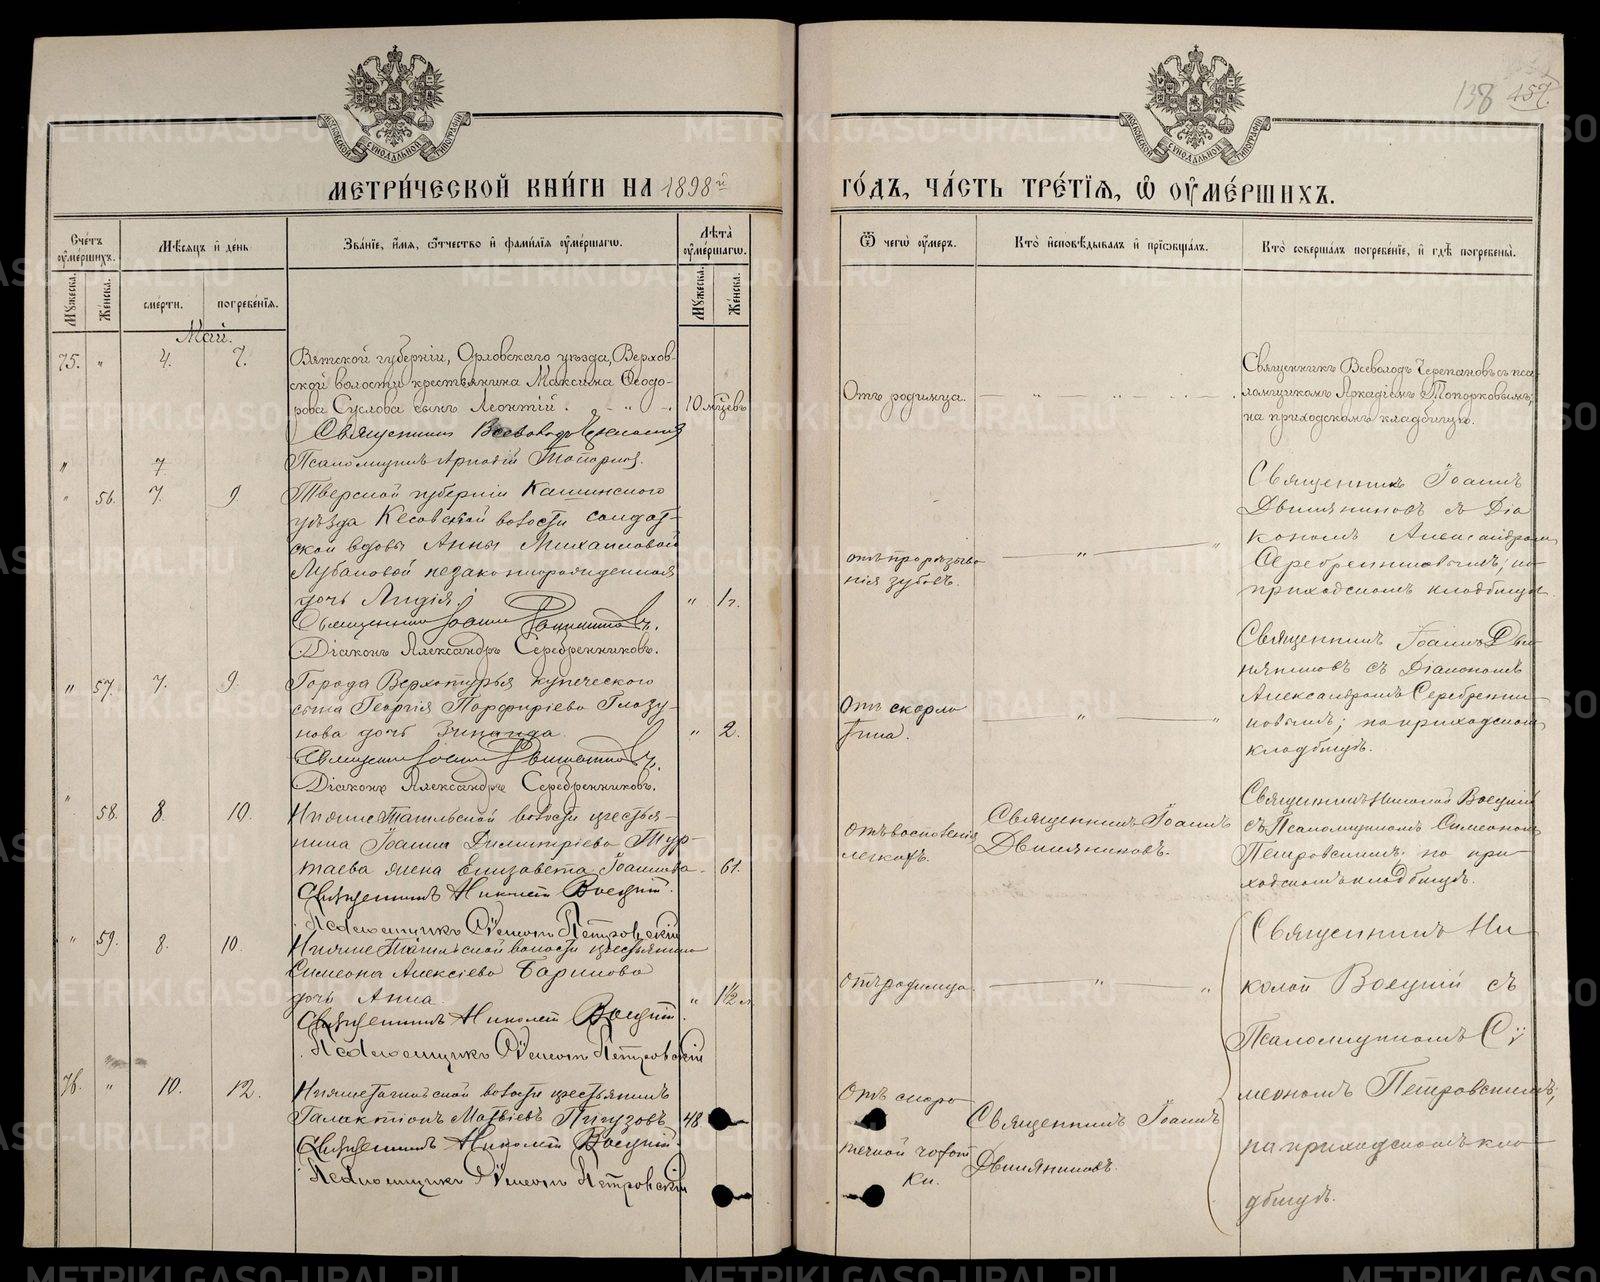 138 457.
МЕТРИ́ЧЕСКОЙ КНИ́ГИ НА 1898й
ГО́ДЪ, ЧА́СТЬ ТРЕ́ТІѦ, Ѡ҆ ОУ҆МЕ́РШИХЪ.
МОСКОВСКОЙ СѴНОДАЛЬНОЙ ТИПОГРАФІИ
МОСКОВСКОЙ СѴНОДАЛЬНОЙ ТИПОГРАФІИ
Сче́тъ оу҆ме́ршихъ.
Мѣ́сяцъ и҆ день
Зва́нїе, и҆́мѧ, ѻ҆́тчество и҆ фами́лїѧ оу҆ме́ршагѡ.
Лѣ́та оу҆ме́ршагѡ.
Мꙋ́жеска.
Же́нска.
сме́рти.
погребе́нїѧ.
Мꙋ́жеска.
Же́нска.
Ѿ чегѡ̀ оу҆́меръ.
Кто̀ и҆сповѣ́дывалъ и҆ прїѡбща́лъ.
Кто̀ соверша́лъ погребе́нїе, и҆ гдѣ̀ погребены̀.
Май.
75. " 4. 7.
Вятской губерніи, Орловскаго уѣзда, Верхов-
ской волости крестьянина Максима Ѳеодо-
рова Суслова сынъ Леонтій. 10 мцевъ
Священникъ Всеволодъ Черепановъ
" 7
Псаломщикъ Аркадій Топорковъ.
Отъ родимца.
Священникъ Всеволодъ Черепановъ съ пса-
ломщикомъ Аркадіемъ Топорковымъ;
на приходскомъ кладбищѣ.
" 56. 7. 9.
Тверской губерніи Кашинскаго
уѣзда Кесовской волости солдат-
ской вдовы Анны Михаиловой
незаконнорожденная
дочь Лидія. " 1 г.
Священникъ Іоаннъ Двиняниновъ.
Діаконъ Александръ Серебренниковъ.
отъ прорѣзыва
нія зубовъ.
Священникъ Іоаннъ
Двиняниновъ съ Діа
кономъ Александромъ
Серебренниковымъ; на
приходскомъ кладбищѣ.
" 57. 7. 9.
Города Верхотурья купеческаго
сына Георгія Порфиріева Глазу-
нова дочь Зинаида. " 2.
Священникъ Іоаннъ Двиняниновъ.
Діаконъ Александръ Серебренниковъ.
Отъ скарла
тина.
Священникъ Іоаннъ Дви-
няниновъ съ Діакономъ
Александромъ Серебренни-
ковымъ; на приходскомъ
кладбищѣ.
" 58. 8. 10.
Нижнетагильской волости крестья-
нина Іоанна Димитріева
жена Елизавета Іоаннова. 61.
Священникъ Николай Воецкій.
Псаломщикъ Симеонъ Петровскій
отъ воспаленія
легкихъ.
Священникъ Іоаннъ
Двиняниновъ.
Священникъ Николай Воецкій
съ Псаломщикомъ Симеономъ
Петровскимъ; на при-
ходскомъ кладбищѣ.
" 59. 8. 10.
Нижнетагильской волости крестьянина
Симеона Алексіева Баринова
дочь Анна. " 1½ л
Священникъ Николай Воецкій.
Псаломщикъ Симеонъ Петровскій
отъ родимца.
Священникъ Ни
колай Воецкій съ
Псаломщикомъ Си
меономъ Петровскимъ;
на приходскомъ кла
дбищѣ.
76. " 10. 12.
Нижнетагильской волости крестьянинъ
Галактіонъ Матвіевъ Пигузовъ 48
Священникъ Николай Воецкій.
Псаломщикъ Симеонъ Петровскій
Отъ скоро
течной чахот
ки.
Священникъ Іоаннъ
Двиняниновъ.
METRIKI.GASO-URAL.RU